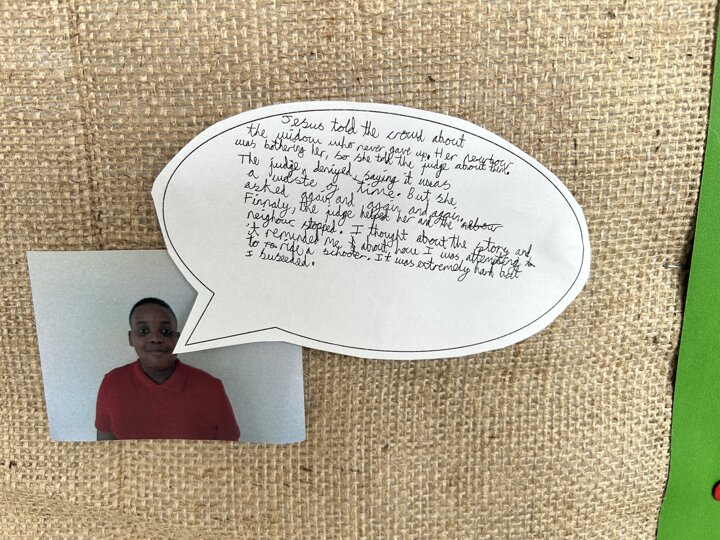 Jesus told the crowd about
the widow who never gave up. Her newbour
was bothering her, so she told the judge about them.
The judge deniyed, saying it was
a waste of time. But she
asked again and again and again.
Finnaly, the judge helped her and the
neighour stopped. I thought about the story and
it reminded me about how I was attempting
to ride a schooter. It was extremely hard but
I suseeded.